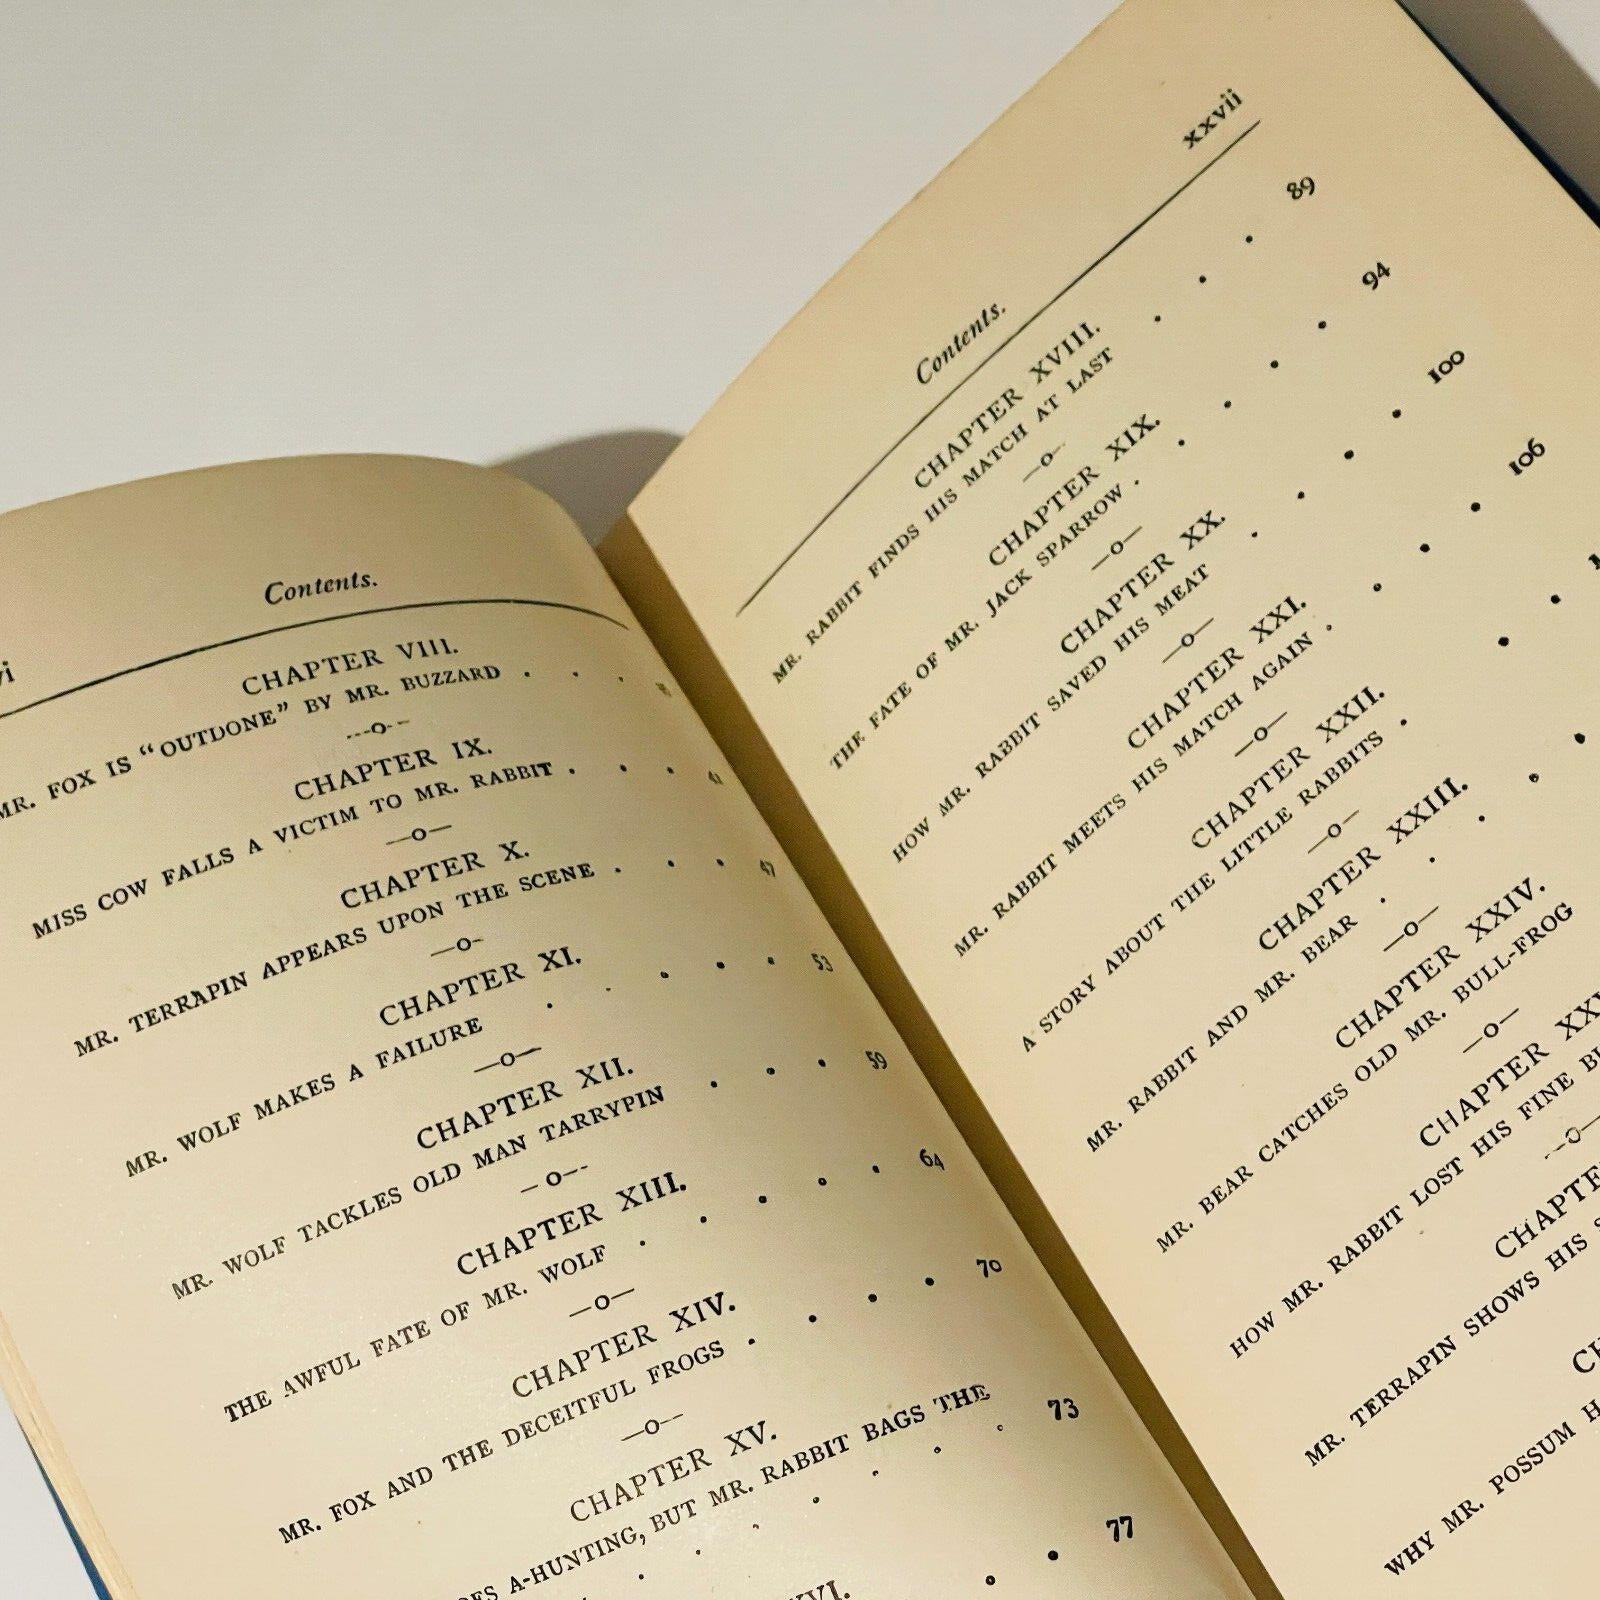 Contents.
CHAPTER VIII.
MR. FOX IS "OUTDONE" BY MR. BUZZARD . . .
---o--
CHAPTER IX.
MISS COW FALLS A VICTIM TO MR. RABBIT . . . 41
—o—
CHAPTER X.
MR. TERRAPIN APPEARS UPON THE SCENE . . . 47
—o-
CHAPTER XI.
MR. WOLF MAKES A FAILURE . . . . . 53
—o—
CHAPTER XII.
MR. WOLF TACKLES OLD MAN TARRYPIN . . . 59
—o--
CHAPTER XIII.
THE AWFUL FATE OF MR. WOLF . . . . . 64
—o—
CHAPTER XIV.
MR. FOX AND THE DECEITFUL FROGS . . . . 70
—o—
CHAPTER XV.
A-HUNTING, BUT MR. RABBIT BAGS THE
. . . . . . . 73
. . 77
Contents. xxvii
CHAPTER XVIII.
MR. RABBIT FINDS HIS MATCH AT LAST . . . 89
—o—
CHAPTER XIX.
THE FATE OF MR. JACK SPARROW . . . . . 94
—o—
CHAPTER XX.
HOW MR. RABBIT SAVED HIS MEAT . . . . 100
—o—
CHAPTER XXI.
MR. RABBIT MEETS HIS MATCH AGAIN . . . . 106
—o—
CHAPTER XXII.
A STORY ABOUT THE LITTLE RABBITS . . .
—o—
CHAPTER XXIII.
MR. RABBIT AND MR. BEAR . . . . .
—o—
CHAPTER XXIV.
MR. BEAR CATCHES OLD MR. BULL-FROG
—o—
CHAPTER
HOW MR. RABBIT LOST HIS FINE
--o—
MR. TERRAPIN SHOWS HIS
WHY MR. POSSUM